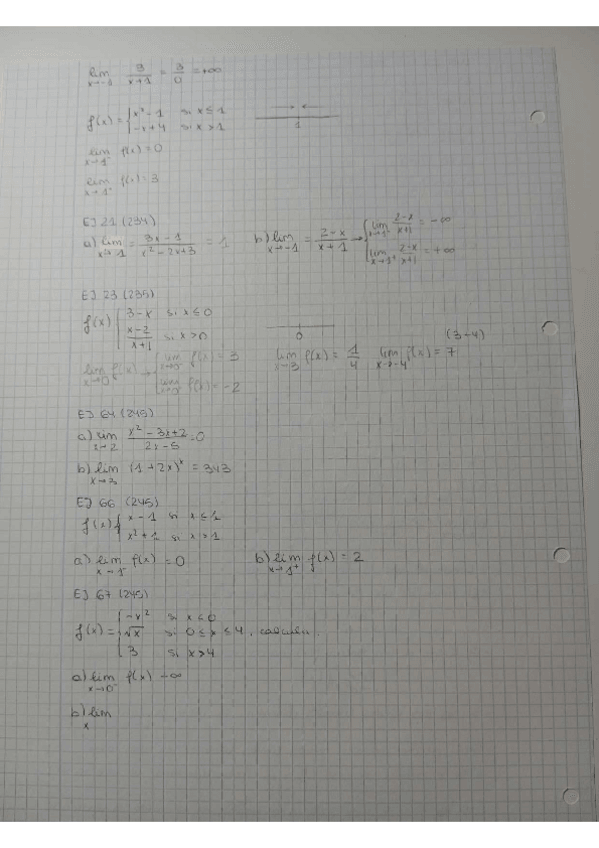 lim x→-1 3/(x+1) = 3/0 = +∞
f(x) = { x² - 1 si x ≤ 1
-x + 4 si x > 1
1
lim x→1⁻ f(x) = 0
lim x→1 f(x) = 3
EJ 21 (234)
a) lim x→-1 = (3x - 1)/(x² - 2x + 3) = 1 b) lim x→-1 = (2 - x)/(x + 1) → { lim x→1⁻ (2-x)/(x+1) = -∞
lim x→1⁺ (2-x)/(x+1) = +∞
EJ 23 (235)
f(x) { 3 - x si x ≤ 0
(x - 2)/(x + 1) si x > 0
0
(3-4)
lim x→0 f(x) → { lim f(x) = 3 lim x→3 f(x) = 1/4 lim x→-4 f(x) = 7
lim f(x) = -2
EJ 64 (245)
a) lim x→2 (x² - 3x + 2)/(2x - 5) = 0
b) lim x→3 (1 + 2x)ˣ = 343
EJ 66 (245)
f(x) { x - 1 si x ≤ 1
x² + 1 si x > 1
a) lim x→1⁻ f(x) = 0 b) lim x→1⁺ f(x) = 2
EJ 67 (245)
f(x) = { -x² si x < 0
√x si 0 ≤ x ≤ 4,
3 si x > 4
a) lim x→0⁻ f(x) -∞
b) lim x